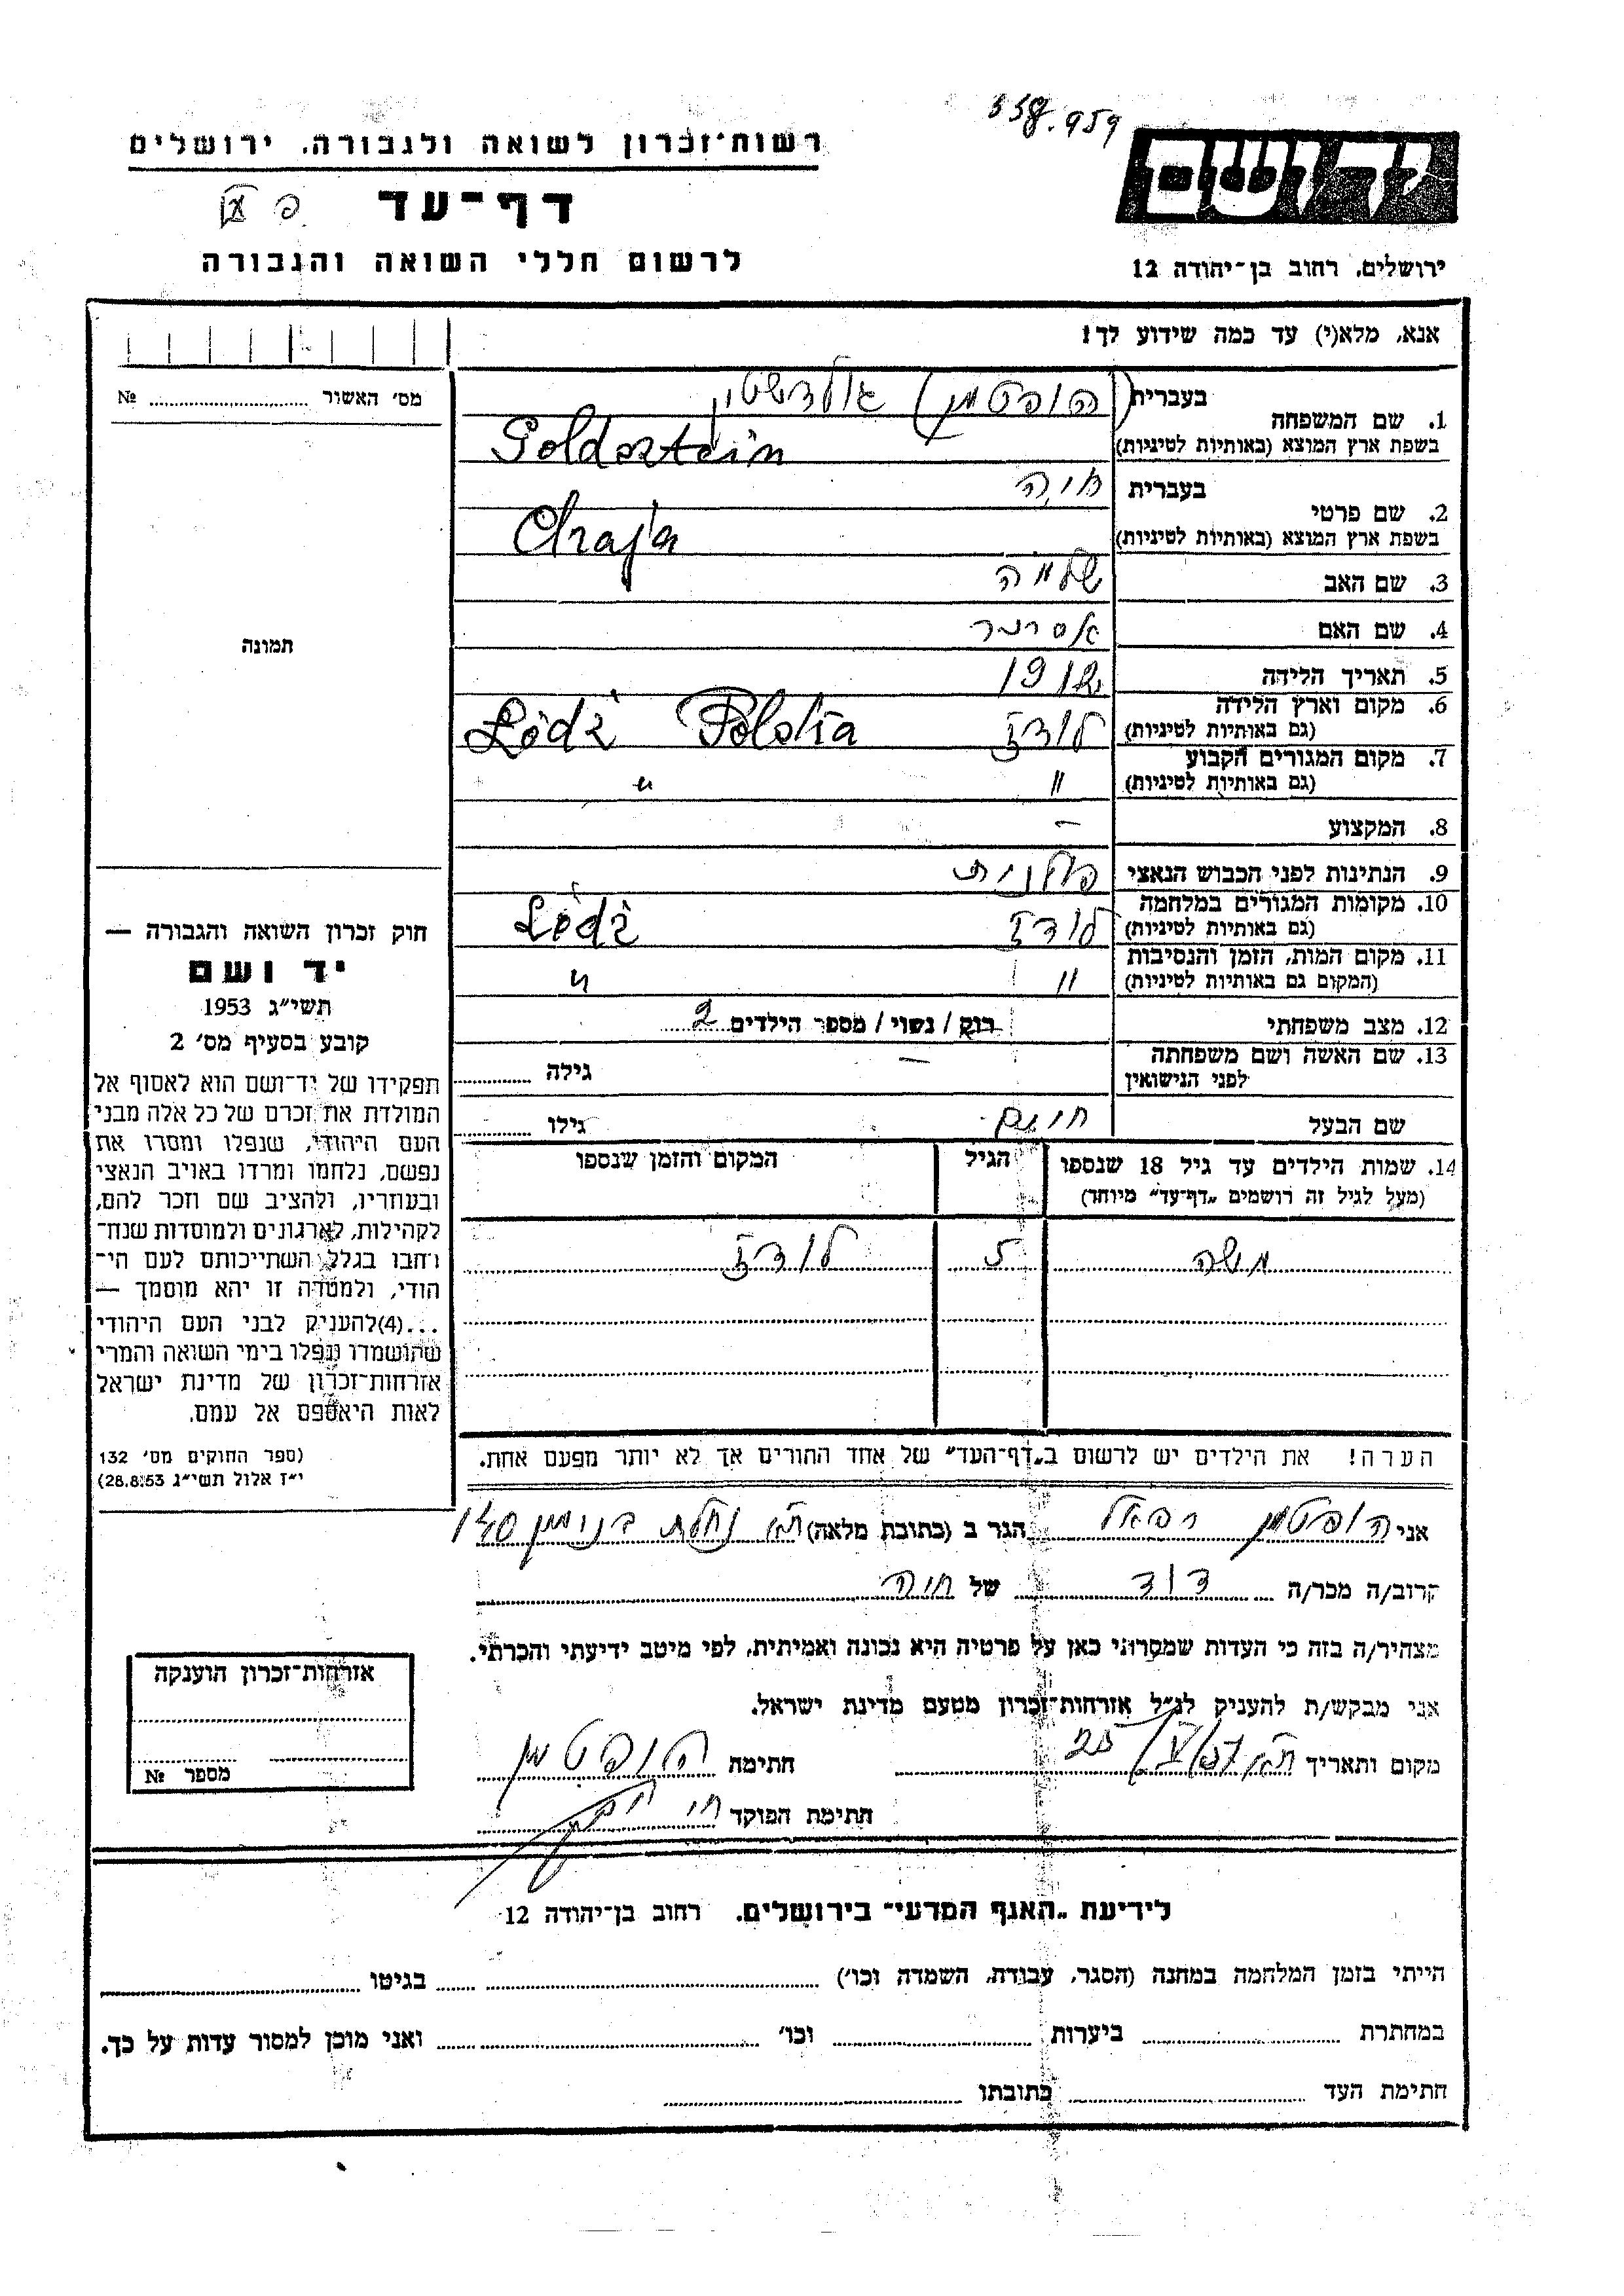 558.959
רשות־זכרון לשואה ולגבורה. ירושלים
דף־עד
לרשום חללי השואה והגבורה
יד ושם
ירושלים, רחוב בן־יהודה 12
אנא, מלא(י) עד כמה שידוע לך!
מס׳ האשור № 
1. שם המשפחה בעברית (הופטמן) גולדשטיין
בשפת ארץ המוצא (באותיות לטיניות) Goldsztein
2. שם פרטי בעברית חיה
בשפת ארץ המוצא (באותיות לטיניות) Chaja
3. שם האב שלמה
4. שם האם אסתר
5. תאריך הלידה 1912
6. מקום וארץ הלידה (גם באותיות לטיניות) לודז Łódź Polska
7. מקום המגורים הקבוע (גם באותיות לטיניות) " "
8. המקצוע –
9. הנתינות לפני הכבוש הנאצי פולנית
10. מקומות המגורים במלחמה (גם באותיות לטיניות) לודז Łódź
11. מקום המות, הזמן והנסיבות (המקום גם באותיות לטיניות) " "
12. מצב משפחתי רוק / נשוי / מספר הילדים 2
13. שם האשה ושם משפחתה לפני הנישואין – גילה
שם הבעל חיים גילו
14. שמות הילדים עד גיל 18 שנספו (מעל לגיל זה רושמים „דף־עד" מיוחד) הגיל המקום והזמן שנספו
משה 5 לודז
הערה! את הילדים יש לרשום ב„דף־העד" של אחד ההורים אך לא יותר מפעם אחת.
תמונה
חוק זכרון השואה והגבורה —
יד ושם
תשי״ג 1953
קובע בסעיף מס׳ 2
תפקידו של יד־ושם הוא לאסוף אל
המולדת את זכרם של כל אלה מבני
העם היהודי, שנפלו ומסרו את
נפשם, נלחמו ומרדו באויב הנאצי
ובעוזריו, ולהציב שם וזכר להם,
לקהילות, לארגונים ולמוסדות שנח־
רבו בגלל השתייכותם לעם הי־
הודי, ולמטרה זו יהא מוסמך —
...(4)להעניק לבני העם היהודי
שהושמדו ונפלו בימי השואה והמרי
אזרחות־זכרון של מדינת ישראל
לאות היאספם אל עמם.
(ספר החוקים מס׳ 132
י״ז אלול תשי״ג 28.8.53)
אני הופטמן רפאל הגר ב (כתובת מלאה) ת״א נחלת בנימין 140
קרוב/ה מכר/ה דוד של חיה
מצהיר/ה בזה כי העדות שמסרתי כאן על פרטיה היא נכונה ואמיתית, לפי מיטב ידיעתי והכרתי.
אני מבקש/ת להעניק לנ״ל אזרחות־זכרון מטעם מדינת ישראל.
מקום ותאריך ת״א חתימה הופטמן
חתימת הפוקד
אזרחות־זכרון הוענקה
מספר №
לידיעת „האגף המדעי״ בירושלים. רחוב בן־יהודה 12
הייתי בזמן המלחמה במחנה (הסגר, עבודת, השמדה וכו׳) בגיטו
במחתרת ביערות וכו׳ ואני מוכן למסור עדות על כך.
חתימת העד כתובתו